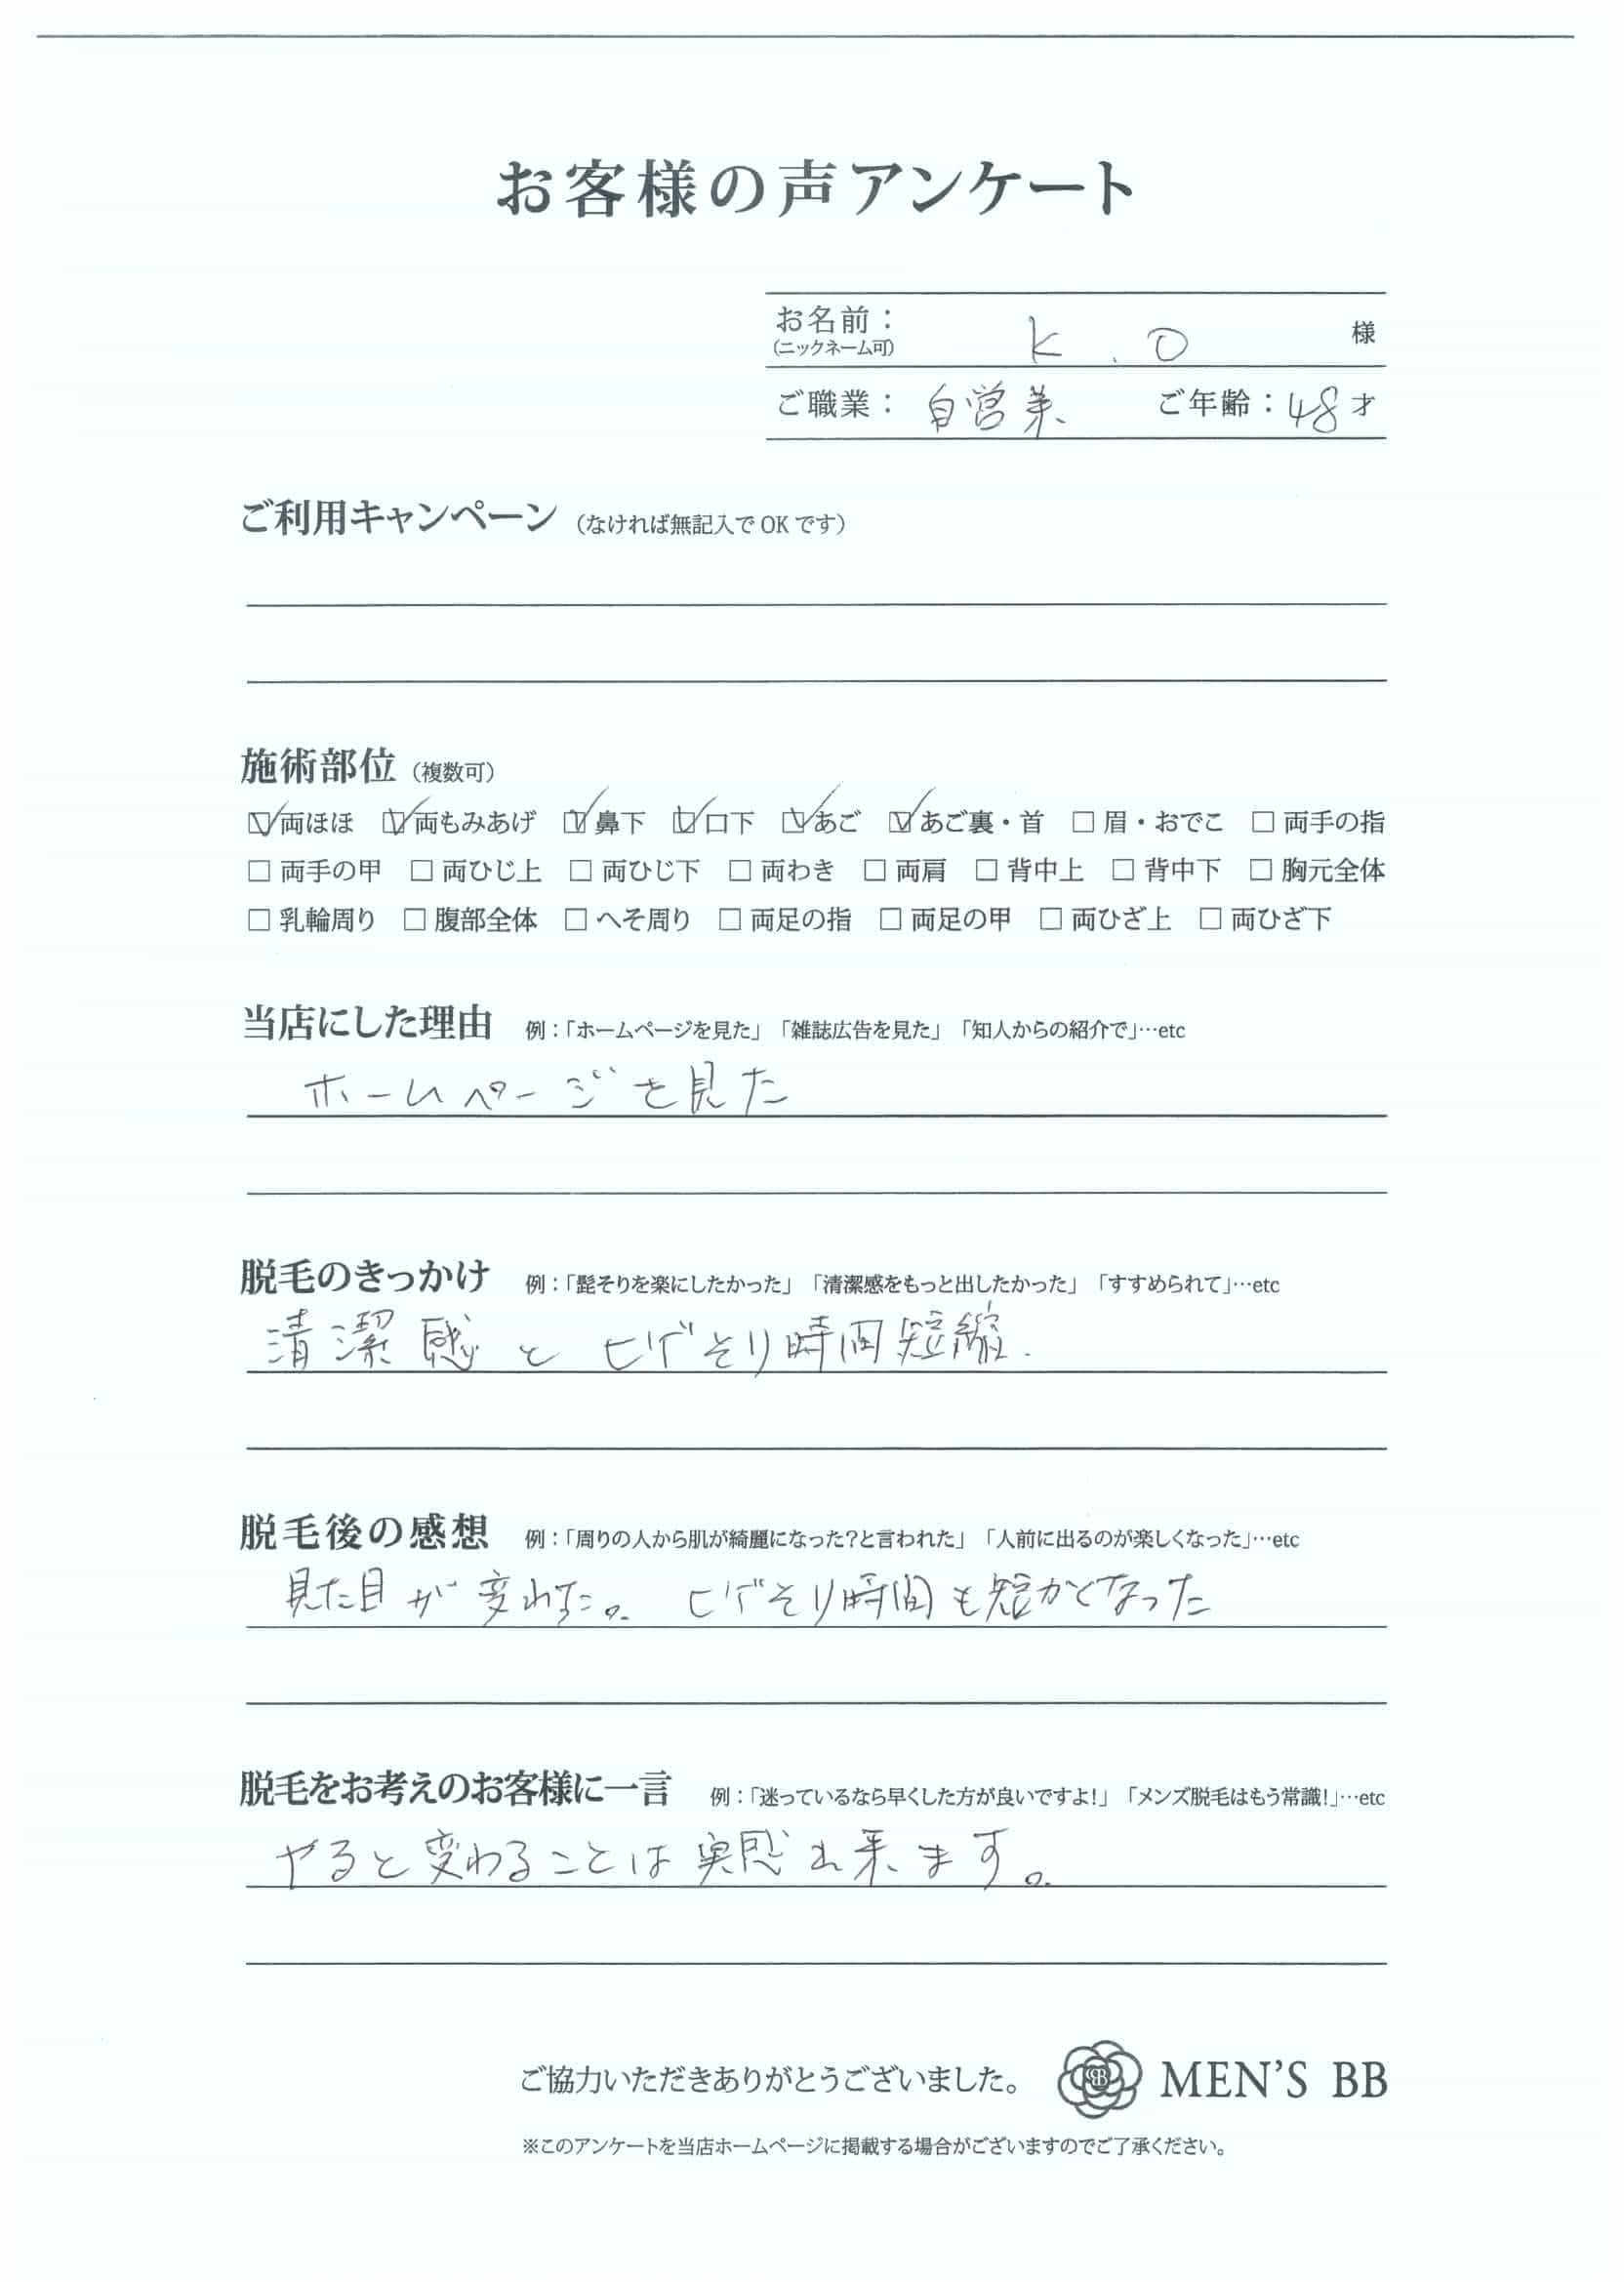 お客様の声アンケート
お名前： K.O 様
(ニックネーム可)
ご職業： 自営業 ご年齢：48才
ご利用キャンペーン （なければ無記入でOKです）
施術部位 （複数可）
☑両ほほ ☑両もみあげ ☑鼻下 ☑口下 ☑あご ☑あご裏・首 □眉・おでこ □両手の指
□両手の甲 □両ひじ上 □両ひじ下 □両わき □両肩 □背中上 □背中下 □胸元全体
□乳輪周り □腹部全体 □へそ周り □両足の指 □両足の甲 □両ひざ上 □両ひざ下
当店にした理由 例：「ホームページを見た」「雑誌広告を見た」「知人からの紹介で」…etc
ホームページを見た
脱毛のきっかけ 例：「髭そりを楽にしたかった」「清潔感をもっと出したかった」「すすめられて」…etc
清潔感とヒゲそり時間短縮.
脱毛後の感想 例：「周りの人から肌が綺麗になった?と言われた」「人前に出るのが楽しくなった」…etc
見た目が変わった。ヒゲそり時間も短かくなった
脱毛をお考えのお客様に一言 例：「迷っているなら早くした方が良いですよ!」「メンズ脱毛はもう常識!」…etc
やると変わることは実感出来ます。
ご協力いただきありがとうございました。 BB MEN'S BB
※このアンケートを当店ホームページに掲載する場合がございますのでご了承ください。